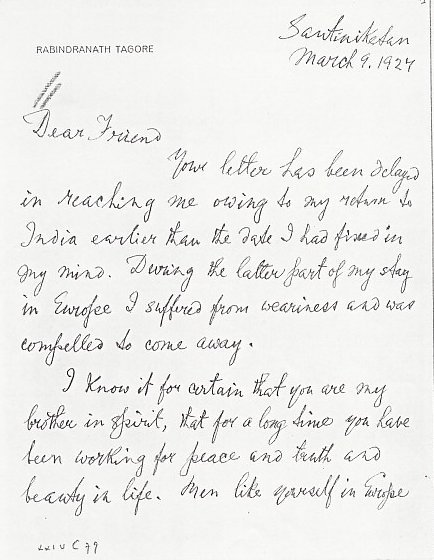 RABINDRANATH TAGORE
Santiniketan
March 9. 1927
Dear Friend
Your letter has been delayed
in reaching me owing to my return to
India earlier than the date I had fixed in
my mind. During the latter part of my stay
in Europe I suffered from weariness and was
compelled to come away.
I know it for certain that you are my
brother in spirit, that for a long time you have
been working for peace and truth and
beauty in life. Men like yourself in Europe